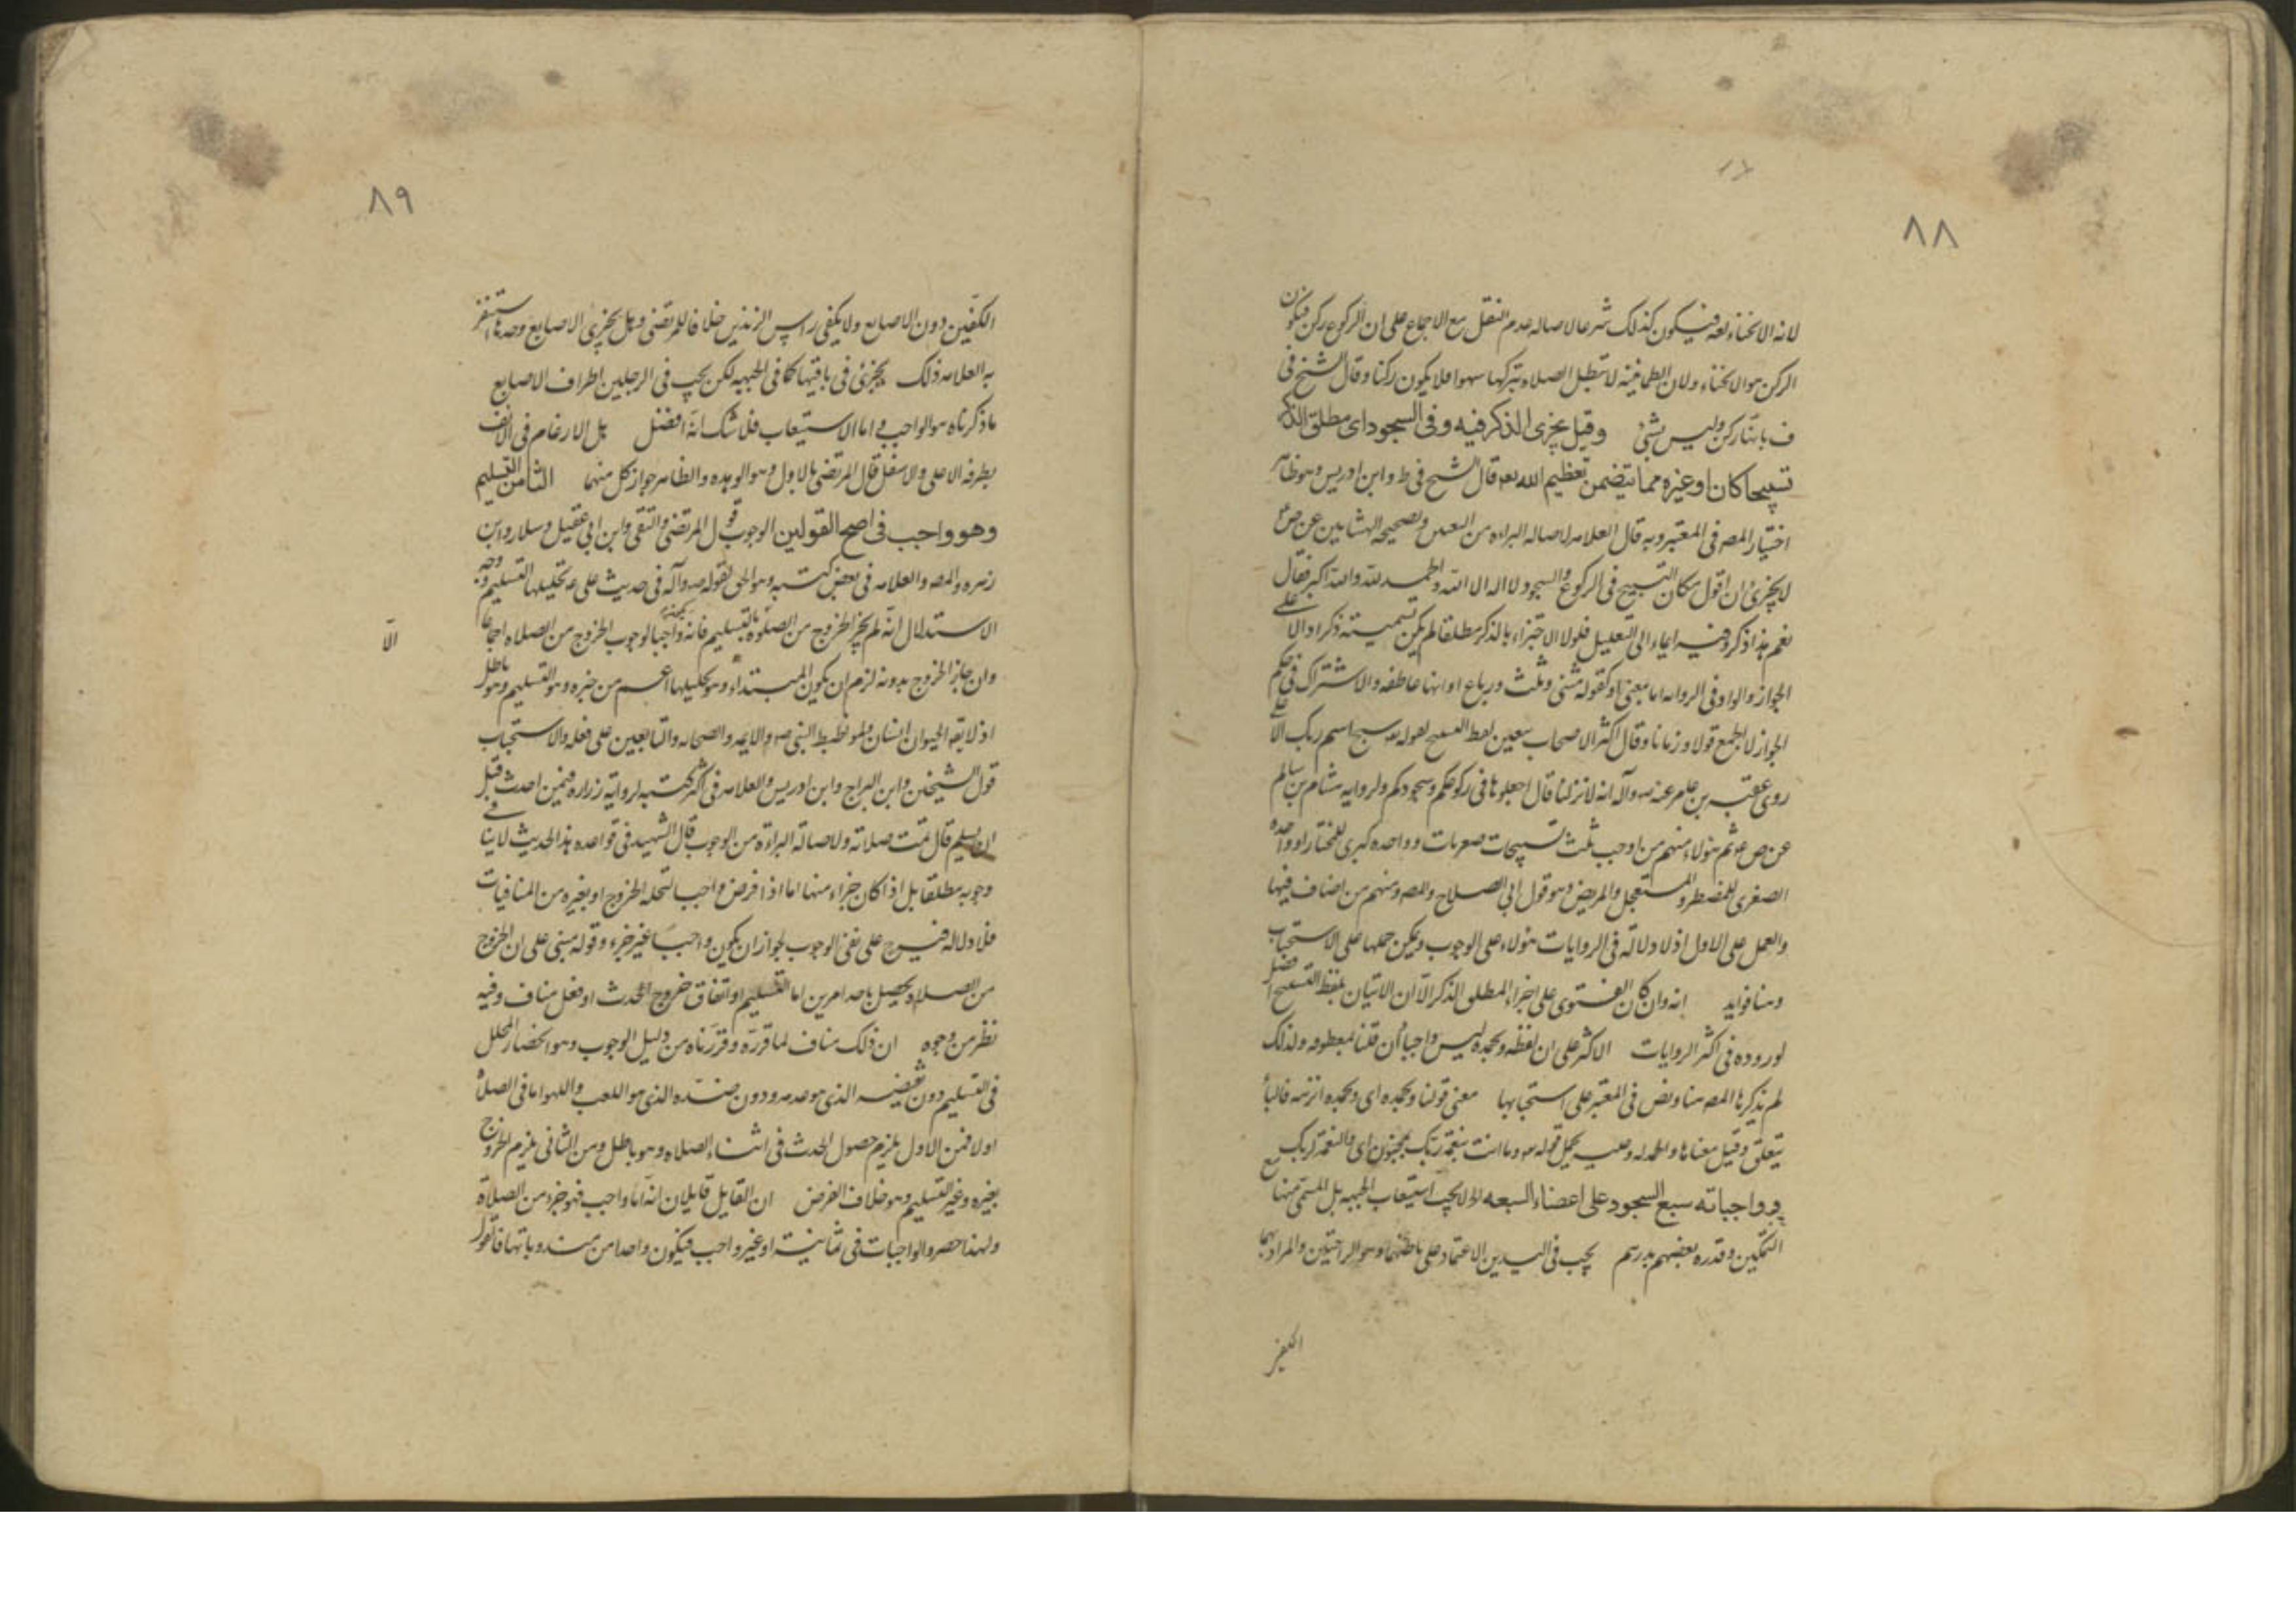 ٨٨
لانه الانحناء لغه فيكون كذلك شرعا لاصاله عدم النقل مع الاجماع على ان الركوع ركن فيكون
الركن هو الانحناء ولان الطمانينه لا تبطل الصلاه بتركها سهوا فلا يكون ركنا وقال الشيخ فى
ف بانها ركن وليس بشئ وقيل يجزى الذكر فيه وفى السجود اى مطلق الذكر
تسبيحا كان او غيره مما يتضمن تعظيم الله تعه قال الشيخ فى ط وابن ادريس وهو ظاهر
اختيار المصه فى المعتبر وبه قال العلامه لاصاله البراءه من التعيين وصحيحه الهشامين عن ص ع
ايجزى ان اقول مكان التسبيح فى الركوع والسجود لا اله الا الله والحمد لله والله اكبر فقال
نعم هذا ذكر وفيه ايماء الى التعليل فلولا الاجتزاء بالذكر مطلقا لم يكن تسميته ذكرا دالا على
الجواز والواو فى الروايه اما بمعنى او كقوله مثنى وثلث ورباع او انها عاطفه والاشتراك فى حكم
الجواز لا الجمع قولا وزمانا وقال اكثر الاصحاب بتعين لفظ التسبيح لقوله تعه سبح اسم ربك الاعلى
روى عقبه بن عامر عنه صه وآله انه لما نزلت قال اجعلوها فى ركوعكم وسجودكم ولروايه هشام بن سالم
عن ص ع ثم هؤلاء منهم من اوجب ثلث تسبيحات صغريات وواحده كبرى للمختار او واحده
الصغرى للمضطر والمستعجل والمريض وهو قول ابى الصلاح والمصه ومنهم من اضاف فيها
والعمل على الاول اذ لا دلاله فى الروايات هؤلاء على الوجوب ويمكن حملها على الاستحباب
وهنا فوايد انه وان كان الفتوى على اجزاء المطلق الذكر الا ان الاتيان بلفظ التسبيح افضل
لوروده فى اكثر الروايات الاكثر على ان لفظه وبحمده ليس واجبا ان قلنا بمعطوفه ولذلك
لم يذكرها المصه هنا ونص فى المعتبر على استحبابها معنى قولنا وبحمده اى وبحمده انزهه فالباء
يتعلق وقيل معناها والحمد له وعليه يحمل قوله تعه وما انت بنعمة ربك بمجنون اى والنعمة لربك
وواجباته سبع السجود على اعضاء السبعه لا يجب استيعاب الجبهه بل المسمى منها مع
التمكين وقدره بعضهم بدرهم يجب فى اليدين الاعتماد على باطنهما وهو الراحتين والمراد بهما
الكفين
٨٩
الكفين دون الاصابع ولا يكفى راس الزندين خلافا للمرتضى وهل يجزى الاصابع وحدها استقر
به العلامه ذلك يجزئ فى باقيها كما فى الجبهه لكن يجب فى الرجلين اطراف الاصابع
ما ذكرناه هو الواجب واما الاستيعاب فلا شك انه افضل هل الارغام فى الانف
بطرفه الاعلى والاسفل قال المرتضى بالاول وهو الوهده والظاهر جواز كل منهما الثامن التسليم
وهو واجب فى اصح القولين الوجوب قول المرتضى والتقى وابن ابى عقيل وسلار وابن
زهره والمصه والعلامه فى بعض كتبه وهو الحق لقوله صه وآله فى حديث على ع تحليلها التسليم ووجه
الاستدلال انه لم يجز الخروج من الصلوة بالتسليم فانه واجبا لوجوب الخروج من الصلاه اجماعا
وان جاز الخروج بدونه لزم ان يكون المبتداء وهو تحليلها اعم من خبره وهو التسليم وهو باطل
اذ لا يقه الحيوان انسان ولمواظبه النبى صه والايمه والصحابه والتابعين على فعله والاستحباب
قول الشيخين وابن البراج وابن ادريس والعلامه فى اكثر كتبه لروايه زراره فيمن احدث قبل
ان يسلم قال تمت صلاته ولاصاله البراءة من الوجوب قال الشهيد فى قواعده هذا الحديث لا ينافى
وجوبه مطلقا بل اذا كان جزاء منها اما اذا فرض واجب لتحله الخروج او بغيره من المنافيات
فلا دلاله فيه على نفى الوجوب لجواز ان يكون واجبا غير جزء وقوله مبنى على ان الخروج
من الصلاه يحصل باحد امرين اما التسليم او اتفاق خروج الحدث او فعل مناف وفيه
نظر من وجوه ان ذلك مناف لما قرره وقررناه من دليل الوجوب وهو انحصار المحلل
فى التسليم دون نقيضه الذى هو عدمه ودون ضده الذى هو اللعب واللهو اما فى الصلاه
اولا فمن الاول يلزم حصول الحدث فى اثناء الصلاه وهو باطل ومن الثانى يلزم الخروج
بغيره وغير التسليم وهو خلاف الفرض ان القايل قايلان انه اما واجب فهو جزء من الصلاة
ولهذا حصر والواجبات فى ثمانيته او غير واجب فيكون واحدا من مندوباتها فالقول
الا